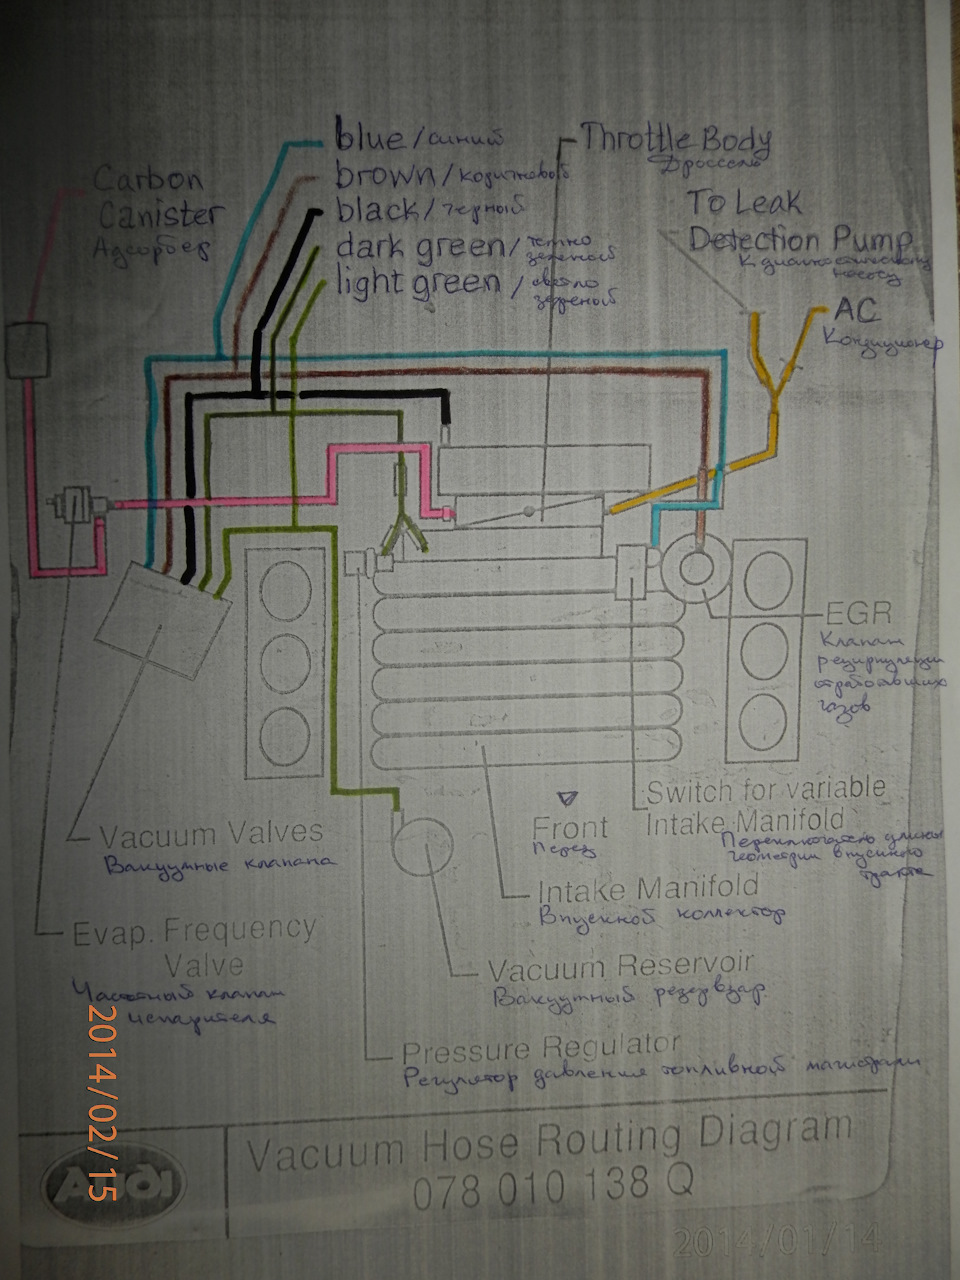 blue/синий
brown/коричневый
black/черный
dark green/темно
зеленый
light green/светло
зеленый
Throttle Body
Дроссель
Carbon
Canister
Адсорбер
To Leak
Detection Pump
К диагностическому
насосу
AC
Кондиционер
EGR
Клапан
рециркуляции
отработавших
газов
Switch for variable
Intake Manifold
Переключатель длины
геометрии впускного
тракта
Front
Перед
Vacuum Valves
Вакуумные клапана
Intake Manifold
Впускной коллектор
Evap. Frequency
Valve
Частотный клапан
испарителя
Vacuum Reservoir
Вакуумный резервуар
Pressure Regulator
Регулятор давления топливной магистрали
Audi
Vacuum Hose Routing Diagram
078 010 138 Q
2014/02/15
2014/01/14